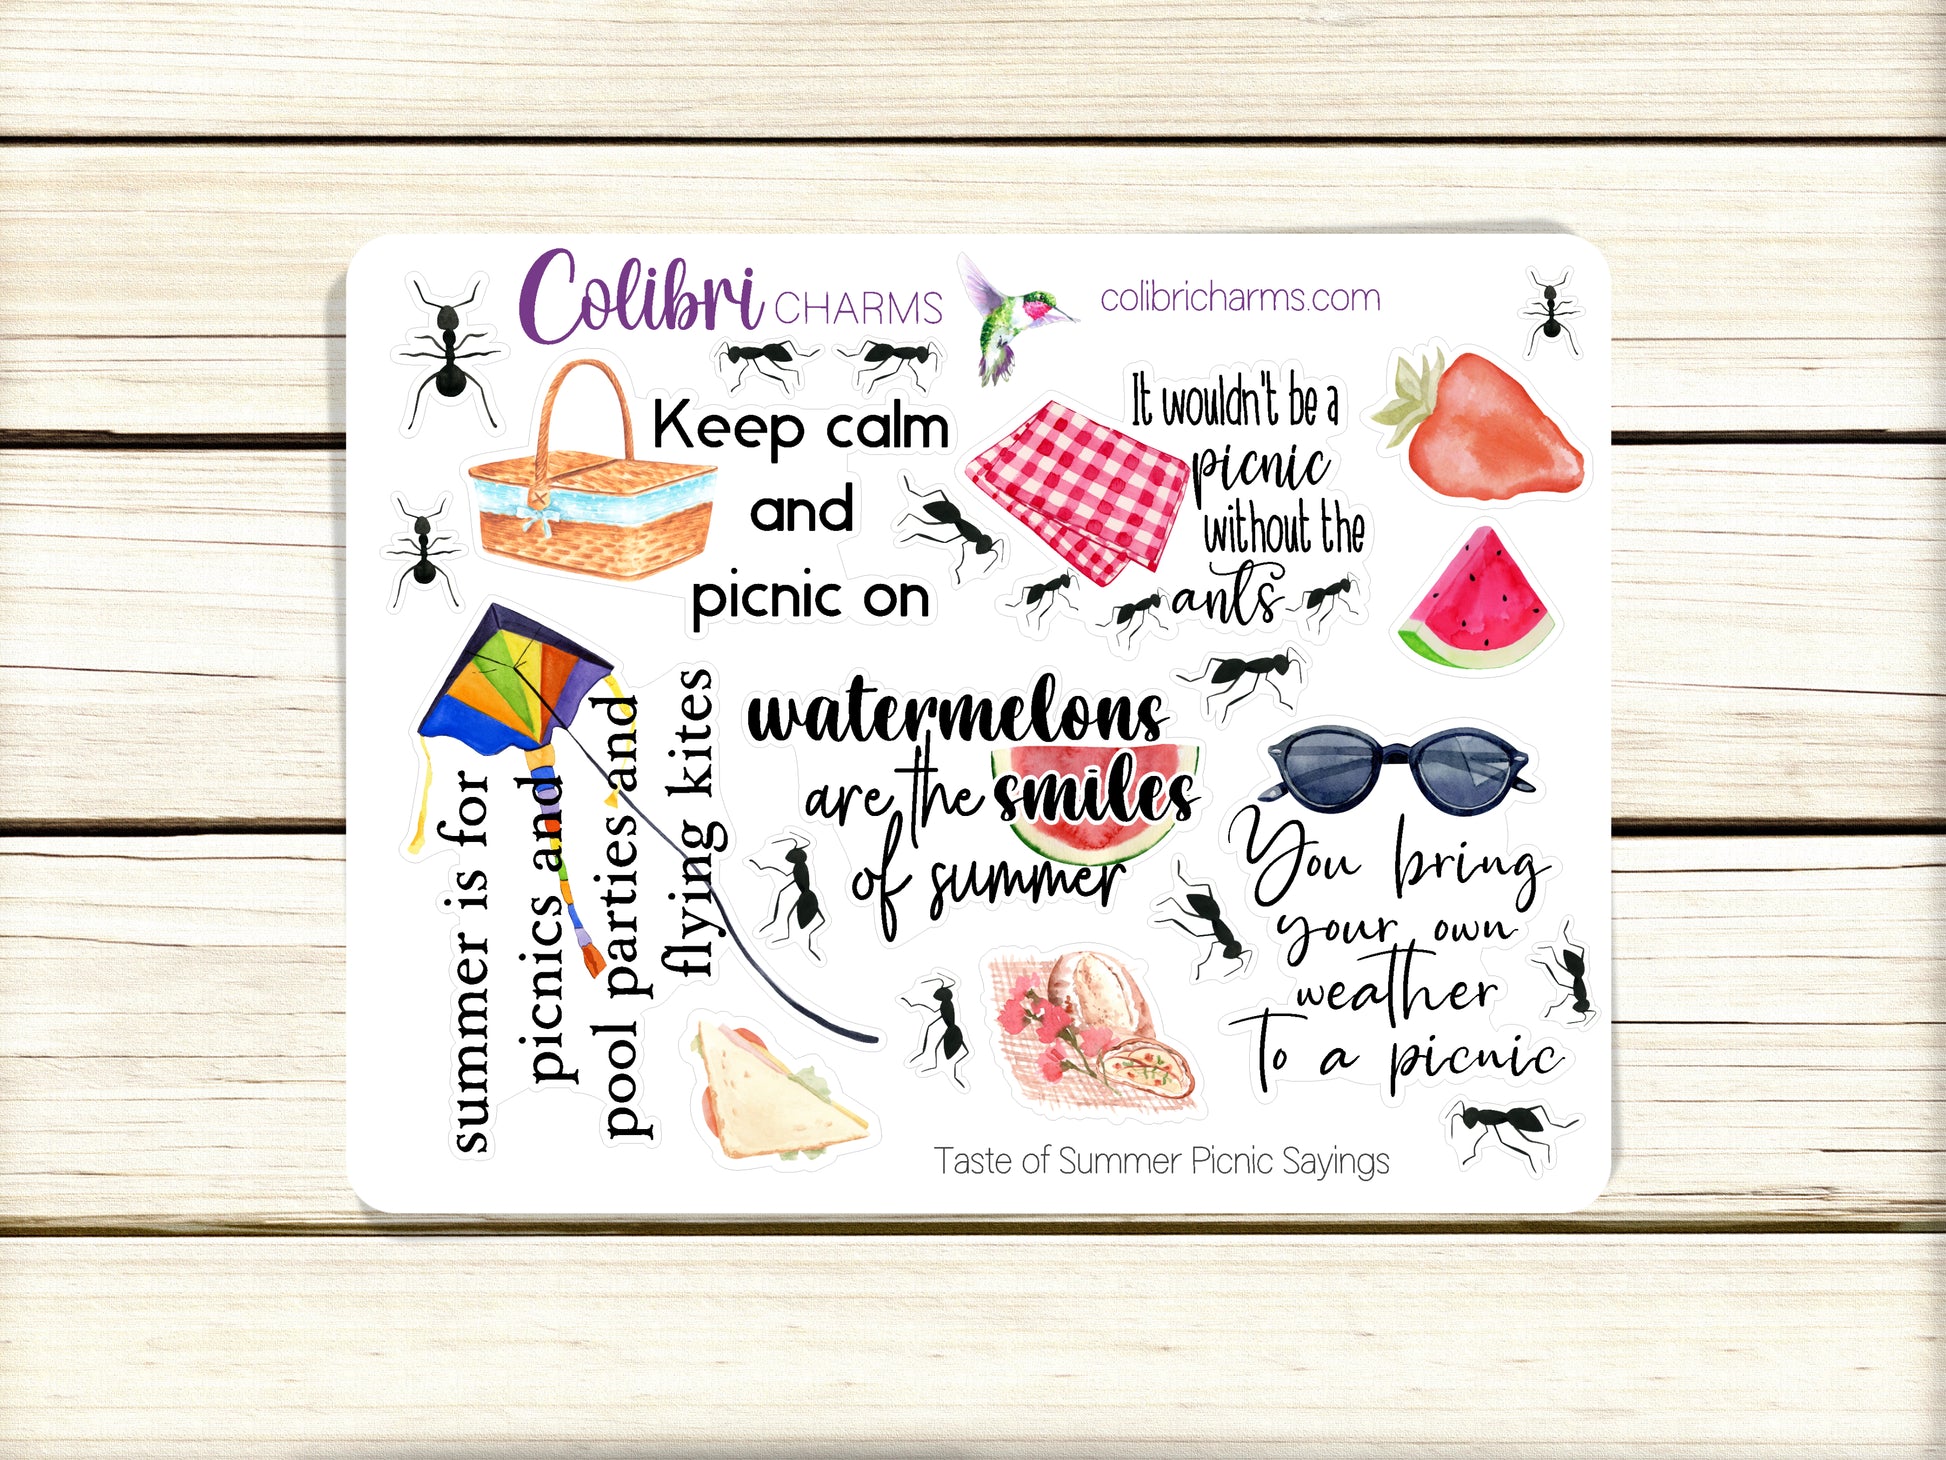 Colibri CHARMS
colibricharms.com
Keep calm
and
picnic on
It wouldn't be a
picnic
without the
ants
summer is for
picnics and
pool parties and
flying kites
watermelons
are the smiles
of summer
You bring
your own
weather
To a picnic
Taste of Summer Picnic Sayings